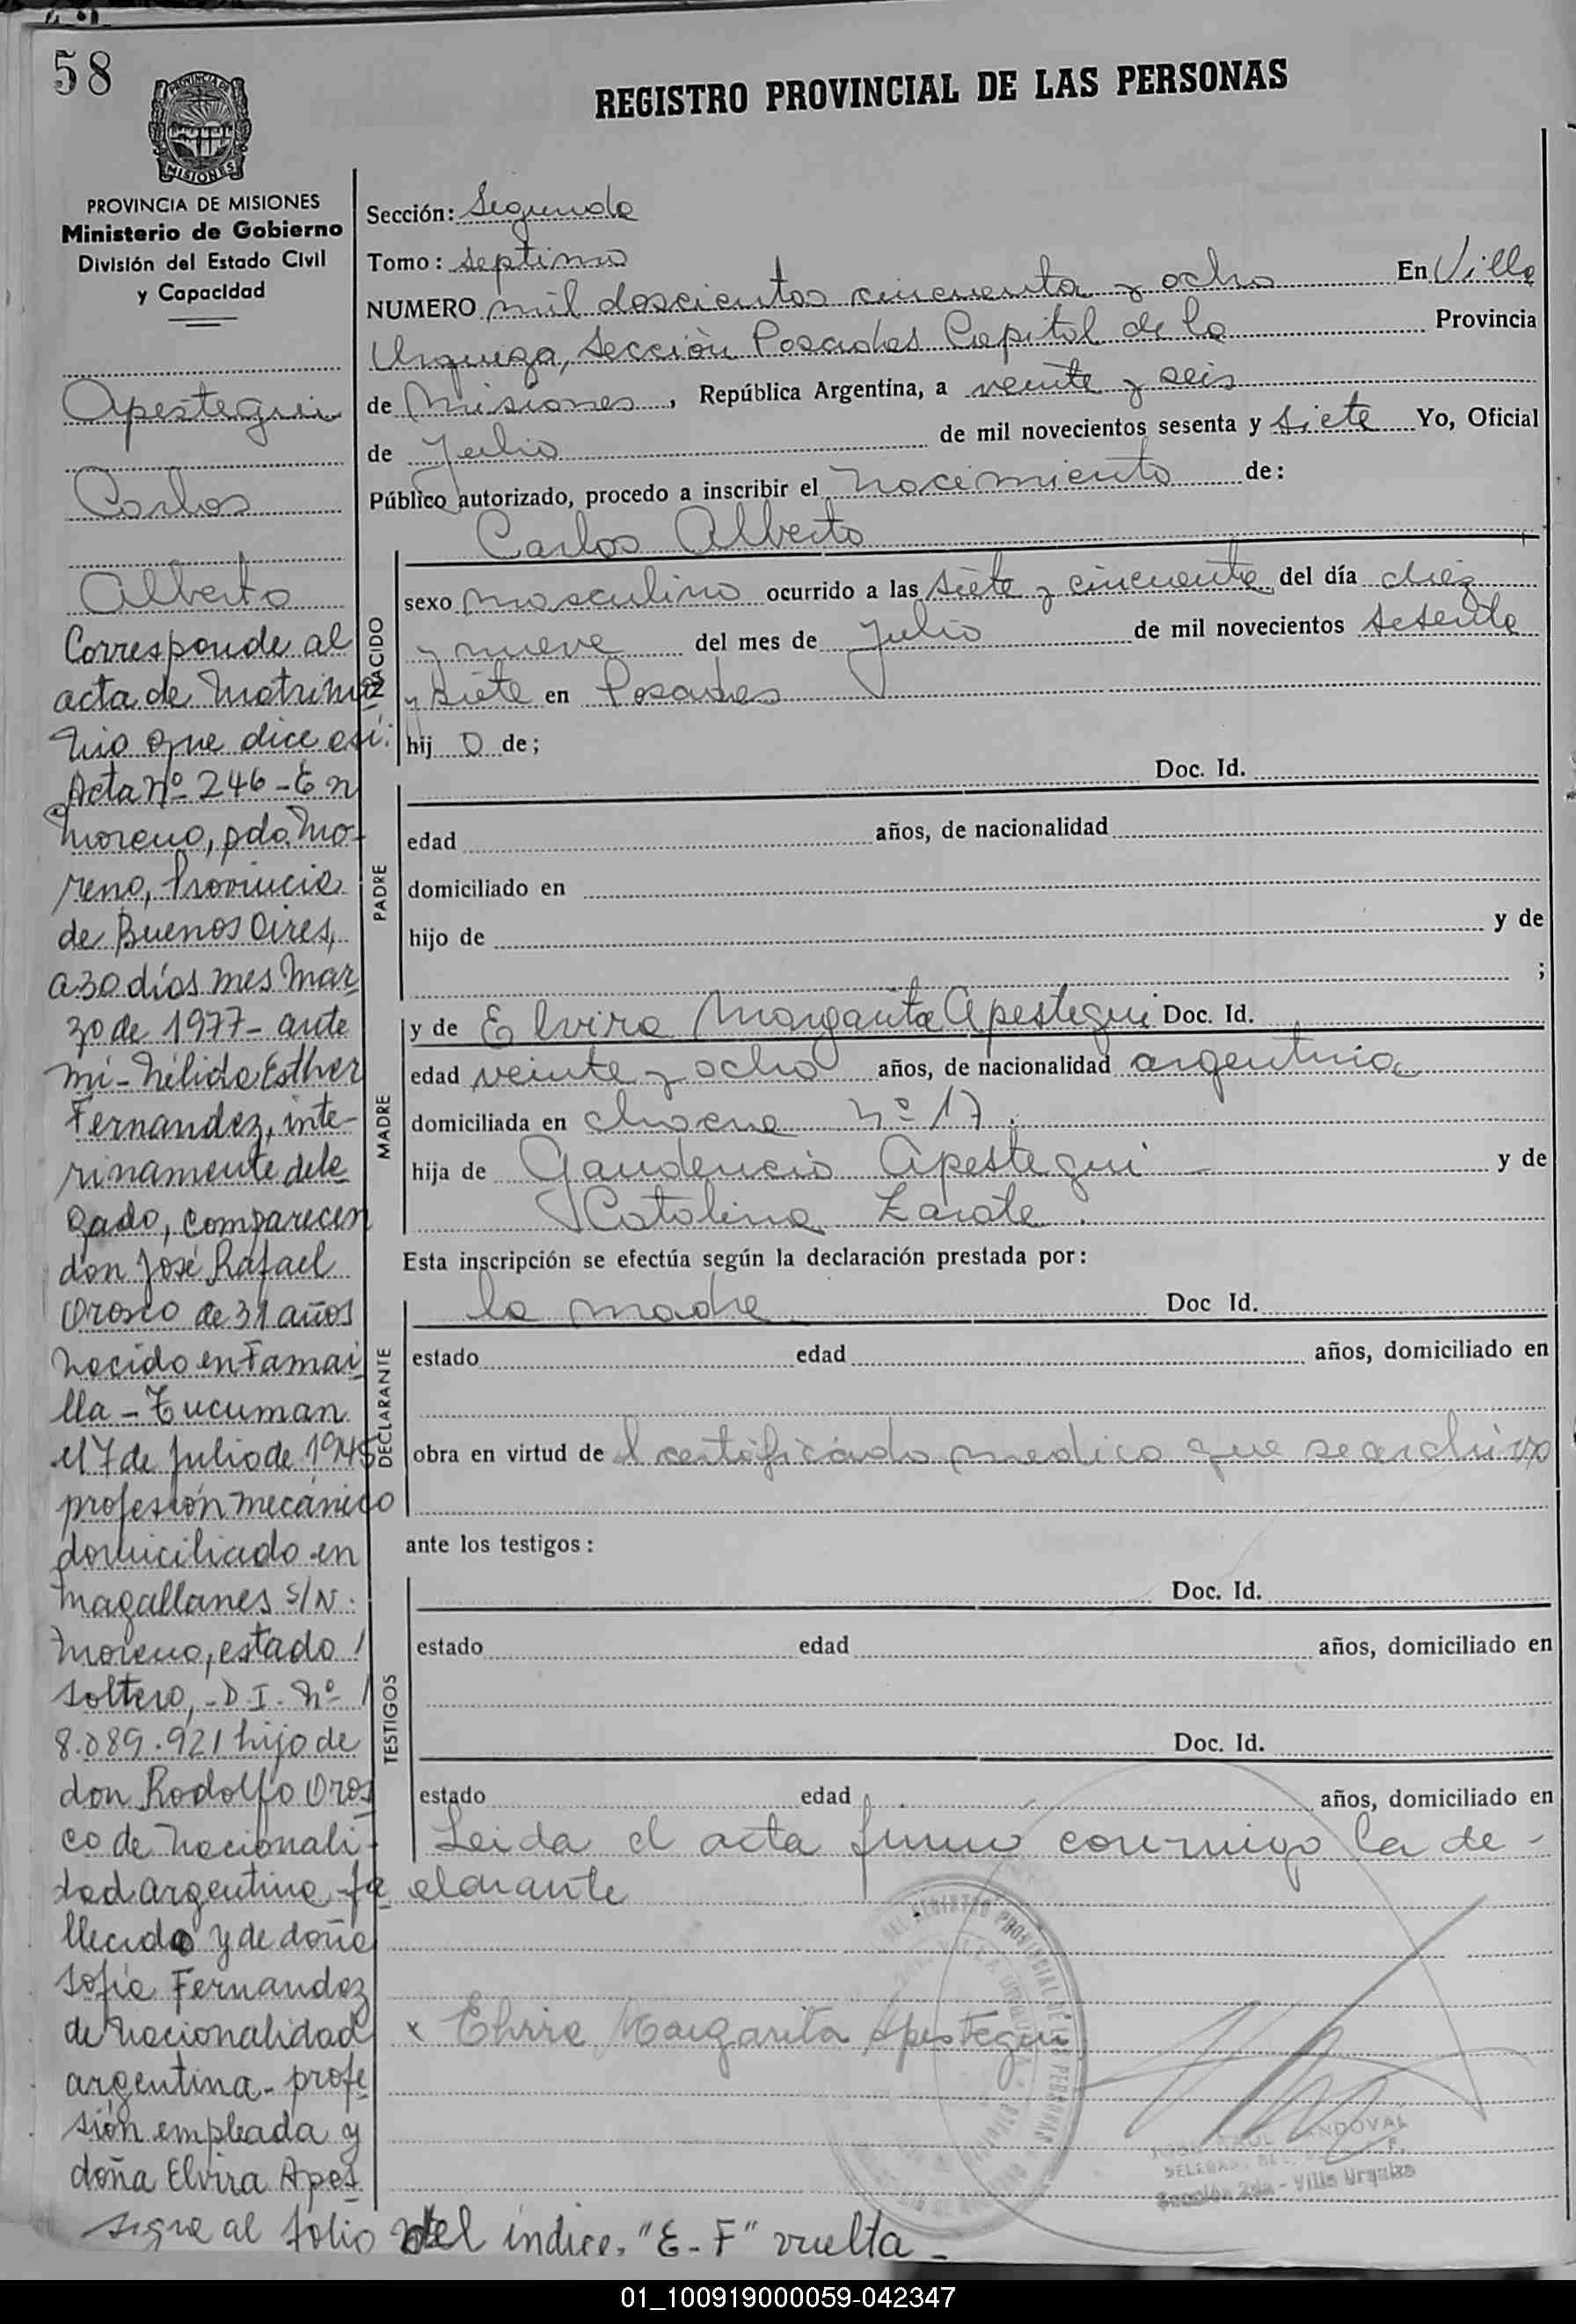 58
PROVINCIA DE
MISIONES
PROVINCIA DE MISIONES
Ministerio de Gobierno
División del Estado Civil
y Capacidad
REGISTRO PROVINCIAL DE LAS PERSONAS
Sección: Segunda
Tomo: septimo
NUMERO mil doscientos cincuenta y ocho En Villa
Urquiza, Sección Posadas Capital de la Provincia
de Misiones, República Argentina, a veinte y seis
de Julio de mil novecientos sesenta y siete Yo, Oficial
Público autorizado, procedo a inscribir el nacimiento de:
Carlos Alberto
NACIDO
sexo masculino ocurrido a las siete y cincuenta del día diez
y nueve del mes de Julio de mil novecientos sesenta
y siete en Posadas
hij o de;
Doc. Id.
PADRE
edad años, de nacionalidad
domiciliado en
hijo de y de
;
MADRE
y de Elvira Margarita Apestegui Doc. Id.
edad veinte y ocho años, de nacionalidad argentina
domiciliada en chacra Nº 17.
hija de Gaudencio Apestegui y de
Catalina Zarate.
Esta inscripción se efectúa según la declaración prestada por:
DECLARANTE
la madre Doc Id.
estado edad años, domiciliado en
obra en virtud de l certificado medico que se archiva
ante los testigos:
TESTIGOS
Doc. Id.
estado edad años, domiciliado en
Doc. Id.
estado edad años, domiciliado en
Leida el acta firma conmigo la de-
clarante
x Elvira Margarita Apestegui
SANDOVAL
Sección 2da - Villa Urquiza
Apestegui
Carlos
Alberto
Corresponde al
acta de Matrimo
nio que dice así:
Acta Nº 246 - En
Moreno, pdo. Mo-
reno, Provincia
de Buenos Aires,
a 30 días mes Mar
zo de 1977 - ante
mi - Nélida Esther
Fernandez, inte-
rinamente dele
gado, comparecen
don José Rafael
Orosco de 31 años
nacido en Famai
lla - Tucuman
el 7 de Julio de 1945
profesión mecánico
domiciliado en
Magallanes S/N.
Moreno, estado
soltero, - D. I. Nº
8.089.921 hijo de
don Rodolfo Oros
co de nacionali-
dad argentina - fa
llecido y de doña
Sofia Fernandez
de nacionalidad
argentina - profe
sión empleada y
doña Elvira Apes
sigue al folio del indice. "E-F" vuelta -
01_100919000059-042347